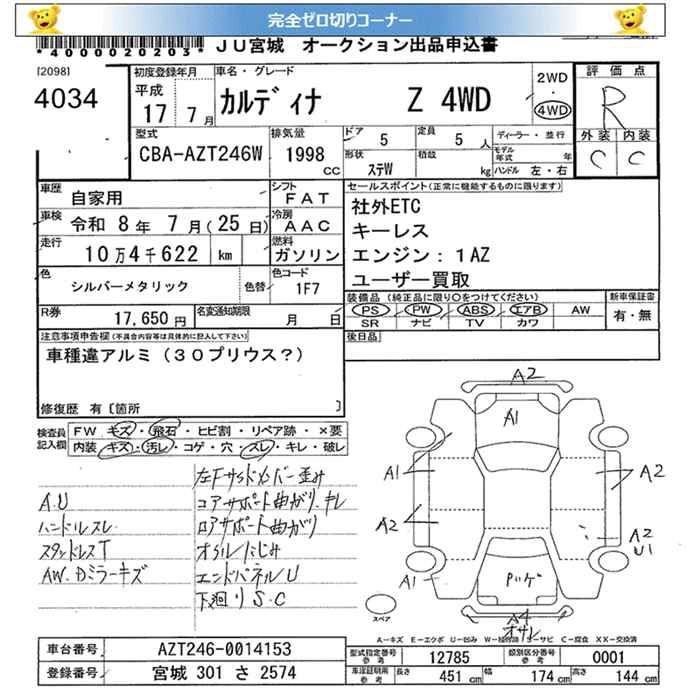 完全ゼロ切りコーナー
*40000020203*
JU宮城 オークション出品申込書
[2098]
4034
初度登録年月
平成
17 7月
車名・グレード
カルディナ Z 4WD
2WD
・
4WD
評価点
R
外装 内装
C C
型式
CBA-AZT246W
排気量
1998 CC
ドア 5
定員 5 人
形状 ステW
積載 kg
ディーラー・並行
モデル年式 年
ハンドル 左・右
車歴 自家用
シフト FAT
車検 令和 8年 7月(25日)
冷房 AAC
走行 10万4千622 km
燃料 ガソリン
色 シルバーメタリック 色替
色コード 1F7
R券 17,650円
名変通知期限 月 日
セールスポイント(正常に機能するものに限ります)
社外ETC
キーレス
エンジン:1AZ
ユーザー買取
装備品(純正品に限り○をつけてください)
PS PW ABS エアB AW
SR ナビ TV カワ
新車保証書
有・無
後日品
注意事項申告欄(不具合内容等は具体的に記入して下さい)
車種違アルミ(30プリウス?)
修復歴 有[箇所 ]
検査員記入欄
FW キズ・飛石・ヒビ割・リペア跡・×要
内装 キズ・汚レ・コゲ・穴・スレ・キレ・破レ
A.U
ハンドルスレ
スタッドレスT
AW.Dミラーキズ
左Fサイドカバー歪み
コアサポート曲がり.キレ
ロアサポート曲がり
オイルにじみ
エンドパネルU
下廻りS.C
A2
A1
A1
A2
A2
A2
U1
A1
A4
スペア
A-キズ E-エクボ U-凹み W-経修跡 S-サビ C-腐食 XX-交換済
車台番号 AZT246-0014153
登録番号 宮城 301 さ 2574
型式指定番号 参考 12785
類別区分番号 参考 0001
車庫証明用 参考 長さ 451cm 幅 174cm 高さ 144cm